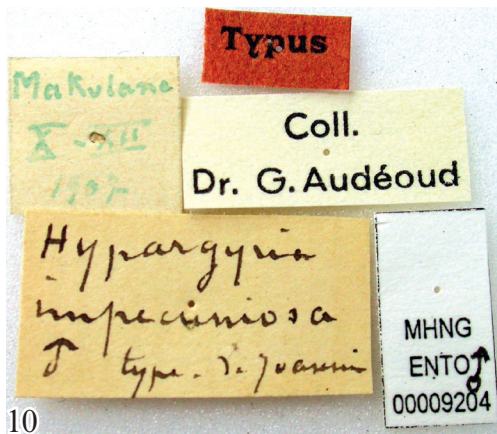 Typus
Makulane
X-XII
1907
Coll.
Dr. G. Audéoud
Hypargyria
impecuniosa
♂ type. d. Joannis
MHNG
ENTO ♂
00009204
10